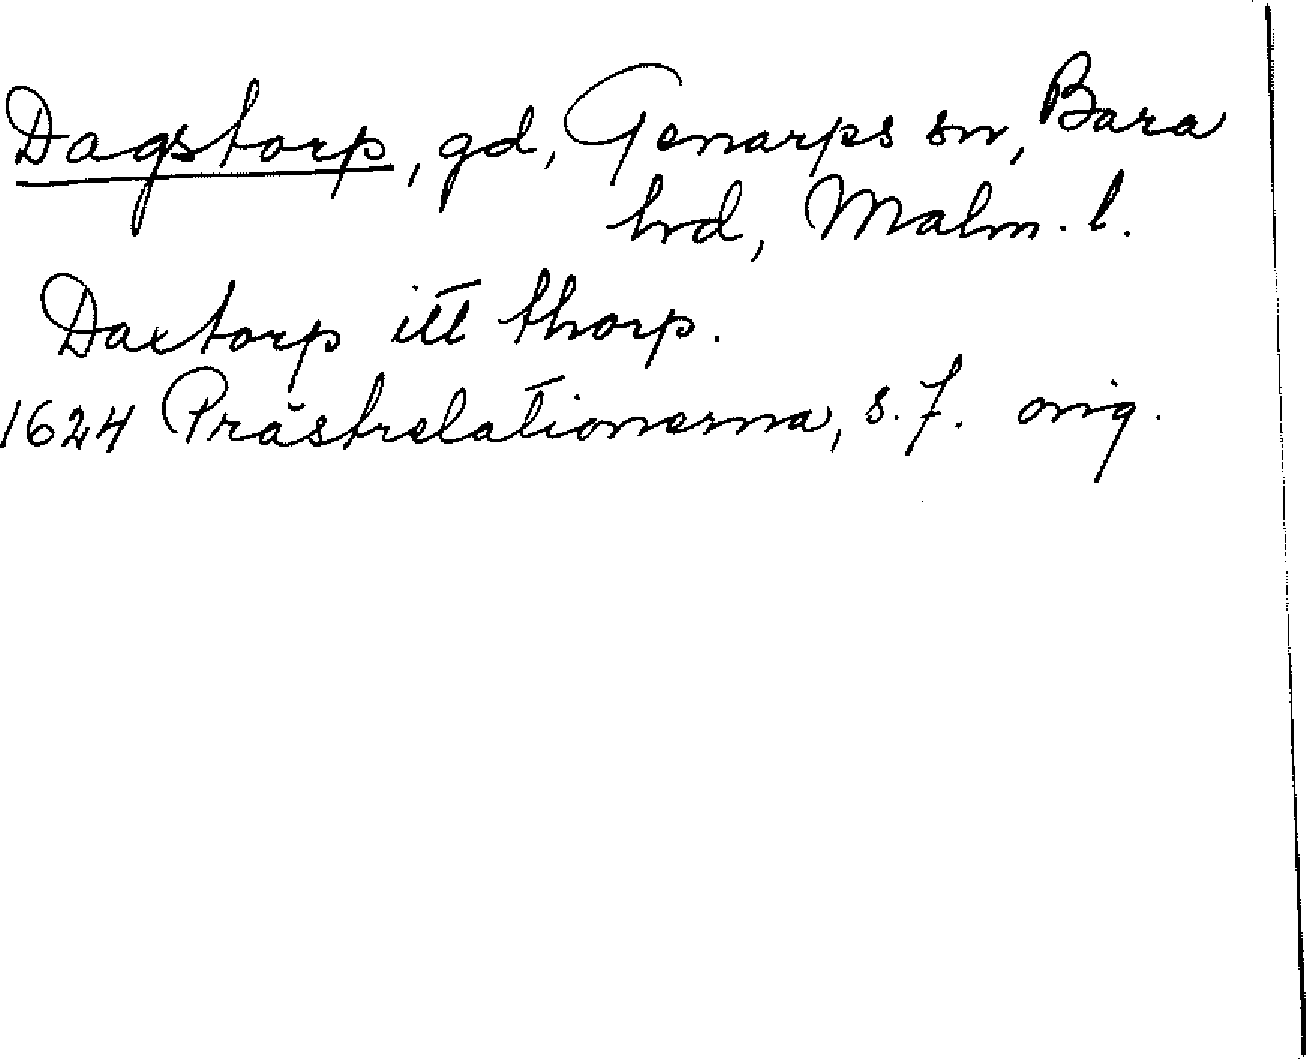 Dagstorp, gd, Genarps sn, Bara
hrd, Malm. l.
Daxtorp itt thorp.
1624 Prästrelationerna, s. 7. orig.